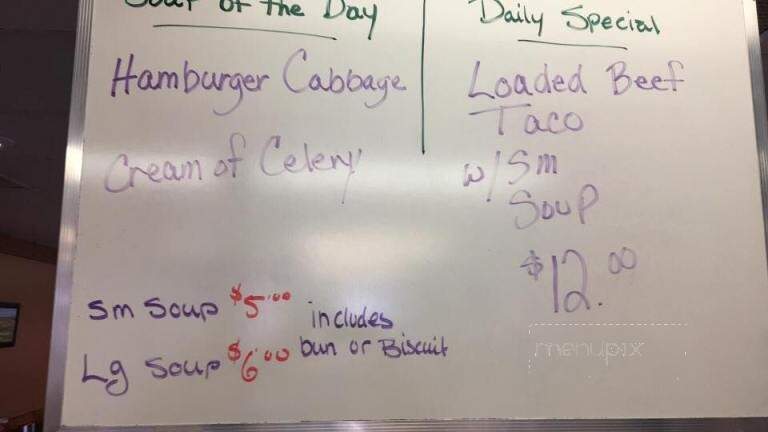 Soup of the Day
Hamburger Cabbage
Cream of Celery
Sm Soup $5.00
Lg Soup $6.00
includes
bun or Biscuit
Daily Special
Loaded Beef
Taco
w/ Sm
Soup
$12.00
menupix